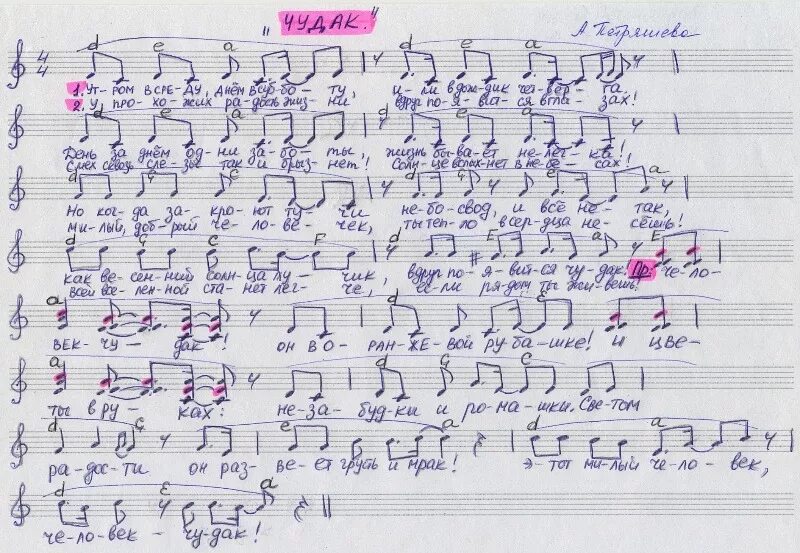 "ЧУДАК."
А Петряшева
d e a d e a
1. УТ-РОМ В СРЕ-ДУ, ДНЁМ В СУБ-БО-ТУ, И-ЛИ В ДОЖ-ДИК ЧЕТ-ВЕР-ГА.
2. У ПРО-ХО-ЖИХ РА-ДОСТЬ ЖИЗ-НИ ВДРУГ ПО-Я-ВИ-ЛАСЯ В ГЛА-ЗАХ!
День за днём од-ни за-бо-ты, жизнь бы-ва-ет не-лег-ка!
Смех сквозь сле-зы так и брыз-нет! Солн-це вспых-нет в не-бе-сах!
Но ког-да за-кро-ют ту-чи не-бо-свод, и всё не так,
ми-лый, доб-рый че-ло-ве-чек, ты теп-ло в серд-ца не-сёшь!
d G C F E
как ве-сен-ний солн-ца лу-чик, вдруг по-я-вит-ся чу-дак! Пр: че-ло-
всей все-лен-ной ста-нет лег-че, если ря-дом ты жи-вёшь!
a d G C E
век-чу-дак! он в о-ран-же-вой ру-баш-ке! и цве-
a d G C
ты в ру-ках: не-за-буд-ки и ро-маш-ки. Све-том
d G e a d E a
ра-дос-ти он раз-ве-ет грусть и мрак! э-тот ми-лый че-ло-век,
d E a
че-ло-век-чу-дак!